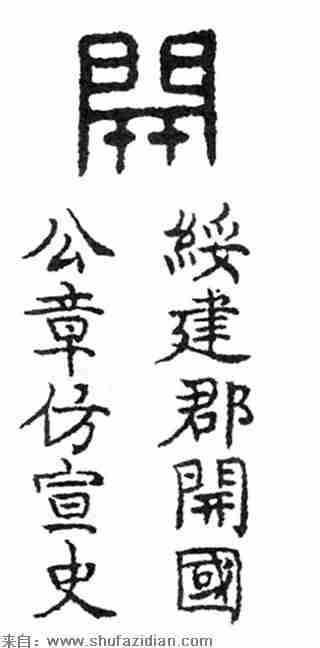 開
綏建郡開國
公章仿宣史
来自：www.shufazidian.com